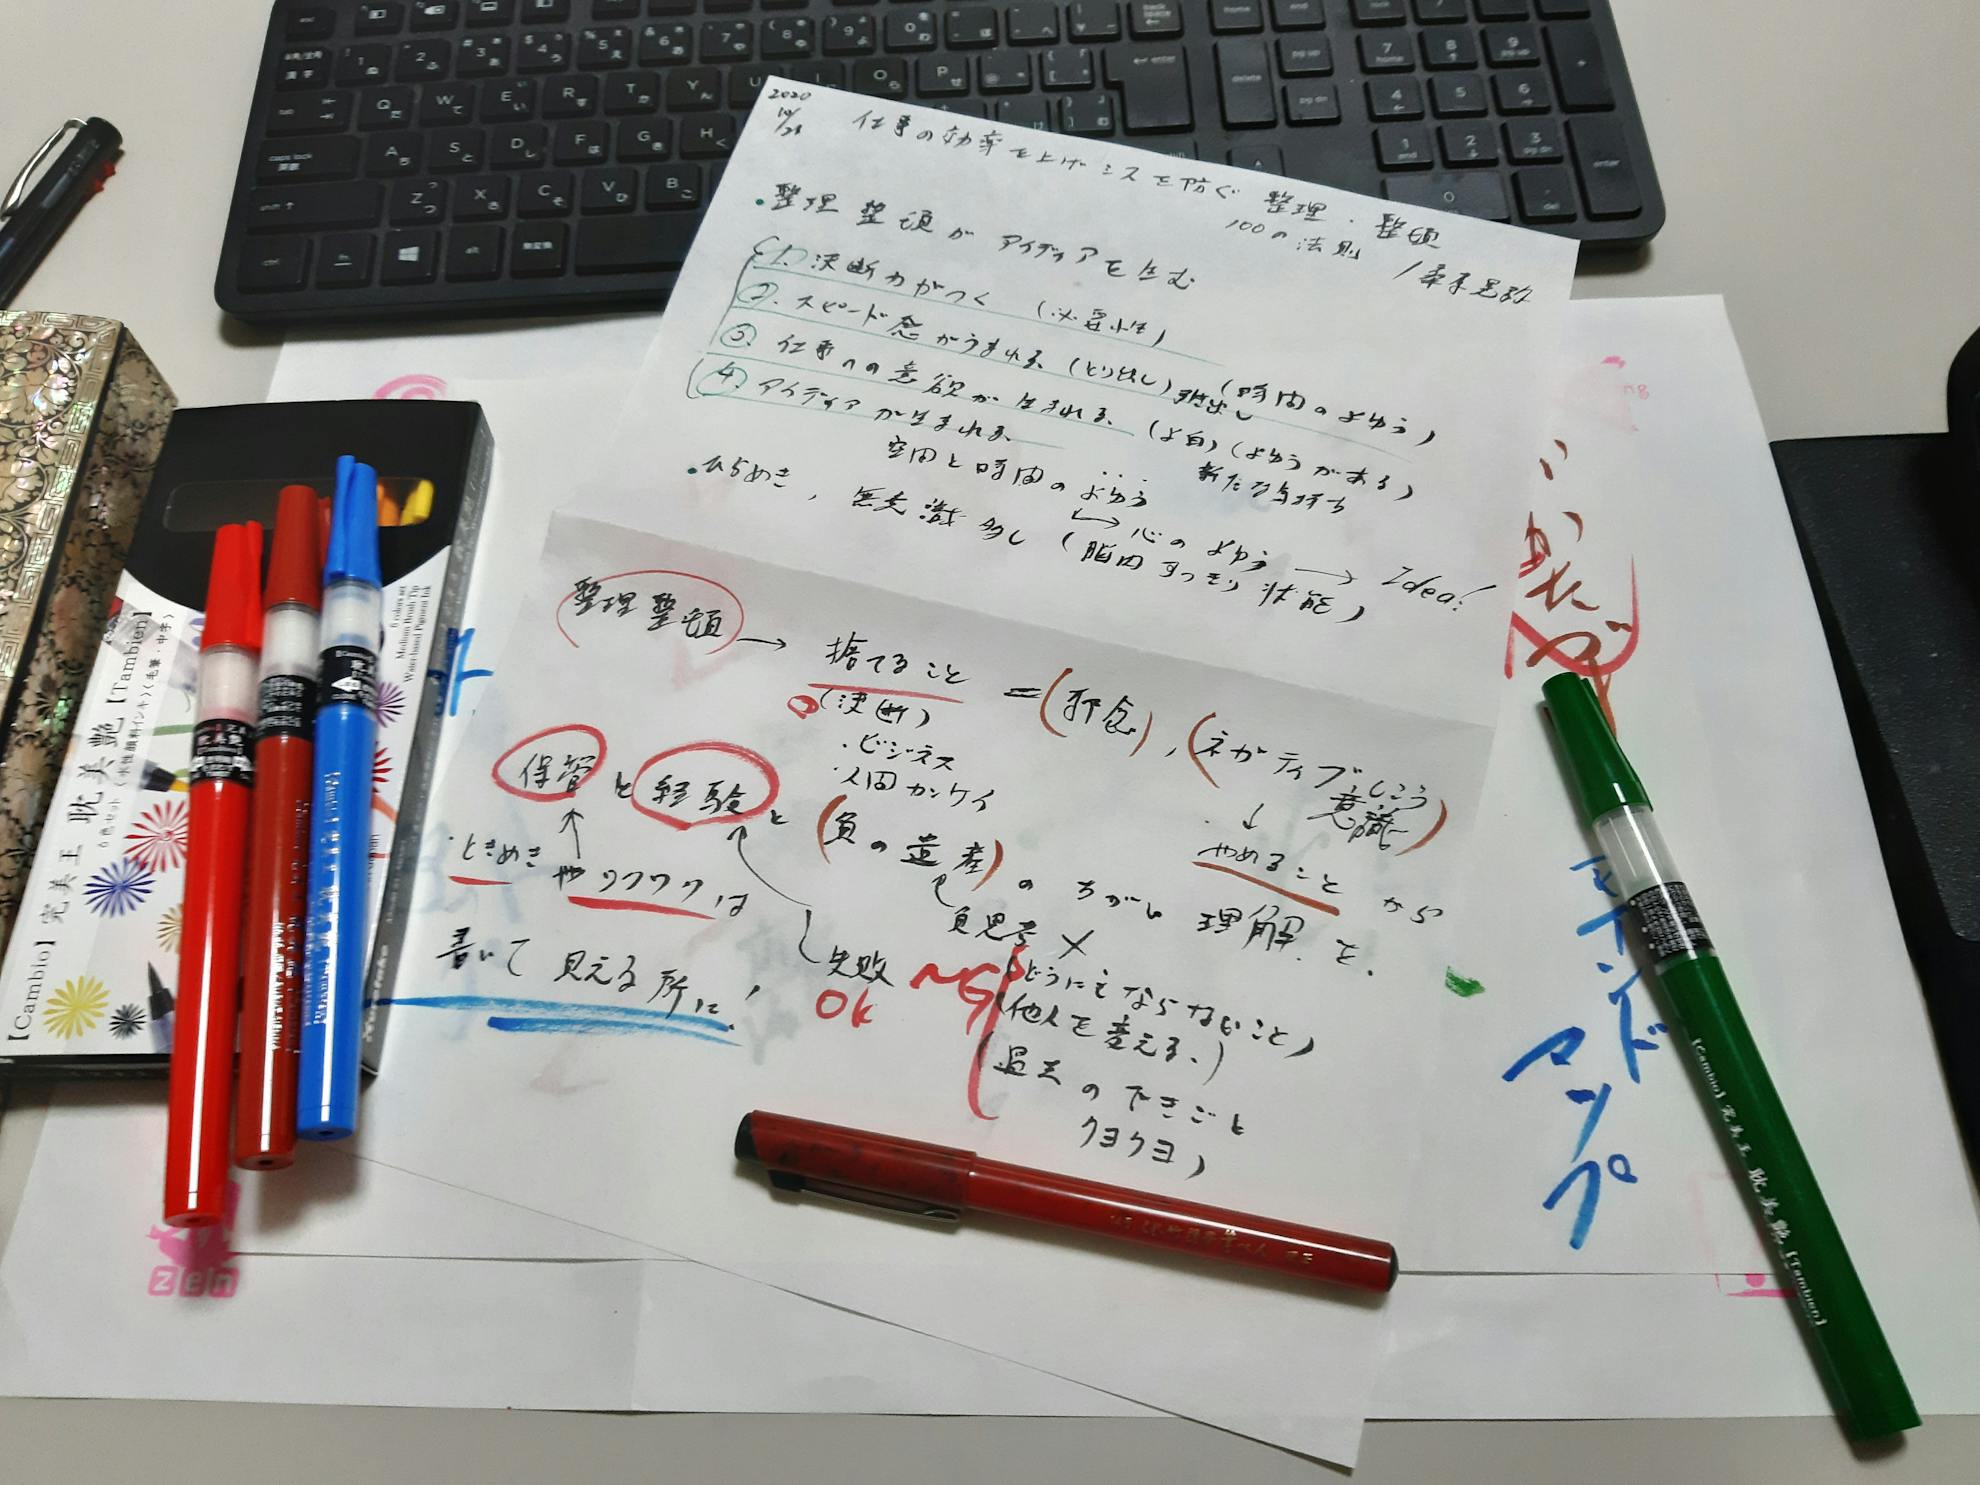 2020
10/21
仕事の効率を上げミスを防ぐ 整理・整頓
100の法則 / 桑原晃弥
・整理整頓がアイディアを生む
①. 決断力がつく (必要性)
②. スピード感がうまれる (とり出し) (時間のよゆう)
③ 仕事への意欲が生まれる (よゆうがある)
新たな気持ち
④. アイディアが生まれる
空間と時間のよゆう
心のよゆう → Idea!
・ひらめき, 無意識 (脳内すっきり状態)
整理整頓 → 捨てること = (邪念), (ネガティブしこう
意識)
(決断)
・ビジネス
・人間カンケイ
↓
やめること から
保管 と 経験 と (負の遺産) の ちがい 理解 を.
・ときめき や ワクワク は
書いて 見える所に!
失敗
OK
負思考 ×
NG
どうにもならないこと)
(他人を変える.)
(過去の できごと
クヨクヨ)
マインド
マップ
zen
【Cambio】完美王 耽美艶【Tambien】
6色セット(水性顔料インキ)(毛筆・中字)
6 colors set
Medium Brush Tip
Water-based Pigment Ink
【Cambio】完美王 耽美艶【Tambien】